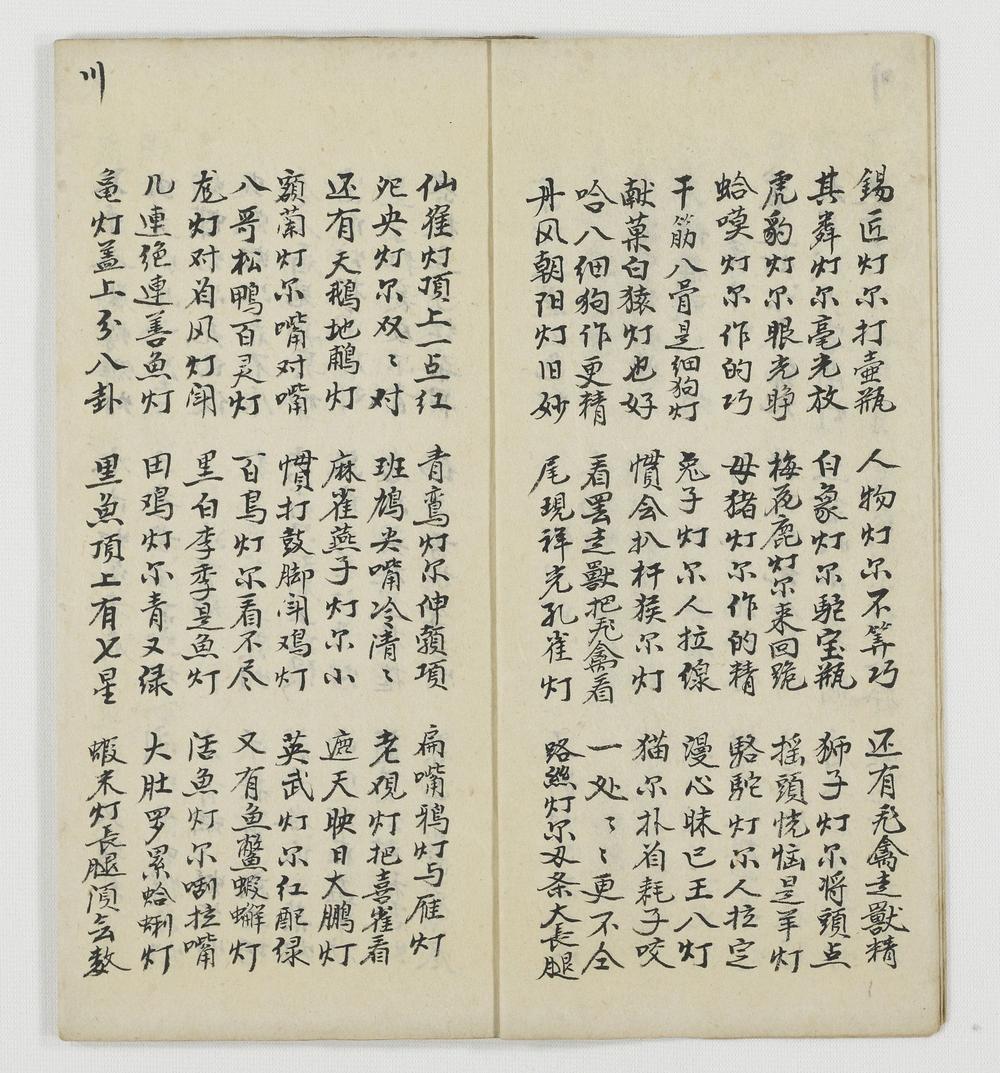 錫匠灯尔打壶瓶 人物灯尔不等巧 还有飛禽走獸精
其粦灯尔毫光放 白象灯尔駝宝瓶 狮子灯尔将頭点
虎豹灯尔眼光睁 梅花鹿灯尔来回跪 摇頭恍恼是羊灯
蛤蟆灯尔作的巧 母猪灯尔作的精 駱駝灯尔人拉定
干筋八骨是细狗灯 兔子灯尔人拉線 漫心昧已王八灯
献菓白猿灯也好 慣会扒杆猴尔灯 猫尔扑着耗子咬
哈八细狗作更精 看罢走獸把飛禽看 一处〻〻更不仝
丹风朝阳灯旧妙 尾現祥光孔雀灯 路丝灯尔双条大長腿
仙崔灯頂上一点红 青鸾灯尔伸項 扁嘴鴉灯与雁灯
夗央灯尔双〻对 班鸠尖嘴冷清〻 老观灯把喜雀看
还有天鵝地鵏灯 麻雀燕子灯尔小 遮天映日大鹏灯
额蔺灯尔嘴对嘴 慣打鼓脚闹鸡灯 英武灯尔红配绿
八哥松鴨百灵灯 百鳥灯尔看不尽 又有鱼鱉蝦蠏灯
龙灯对着风灯闹 里白李季是魚灯 活魚灯尔喇拉嘴
几連绝連善魚灯 田鸡灯尔青又绿 大肚罗累蛤蜊灯
亀灯盖上分八卦 黑魚頂上有七星 蝦米灯長腿須会数
川